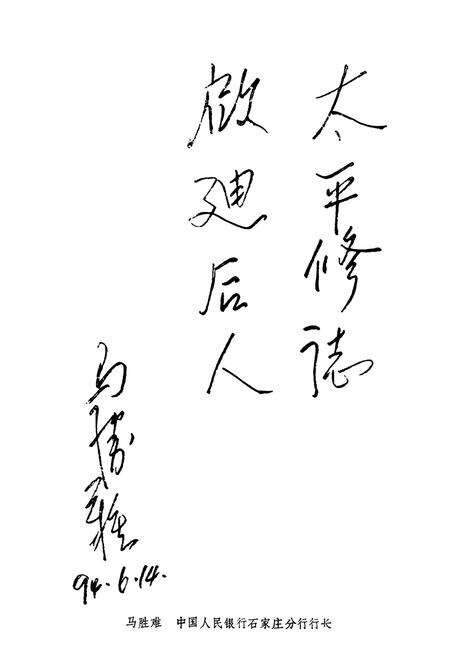 太平修誌
啟廸后人
马勝難
94.6.14.
马胜难 中国人民银行石家庄分行行长